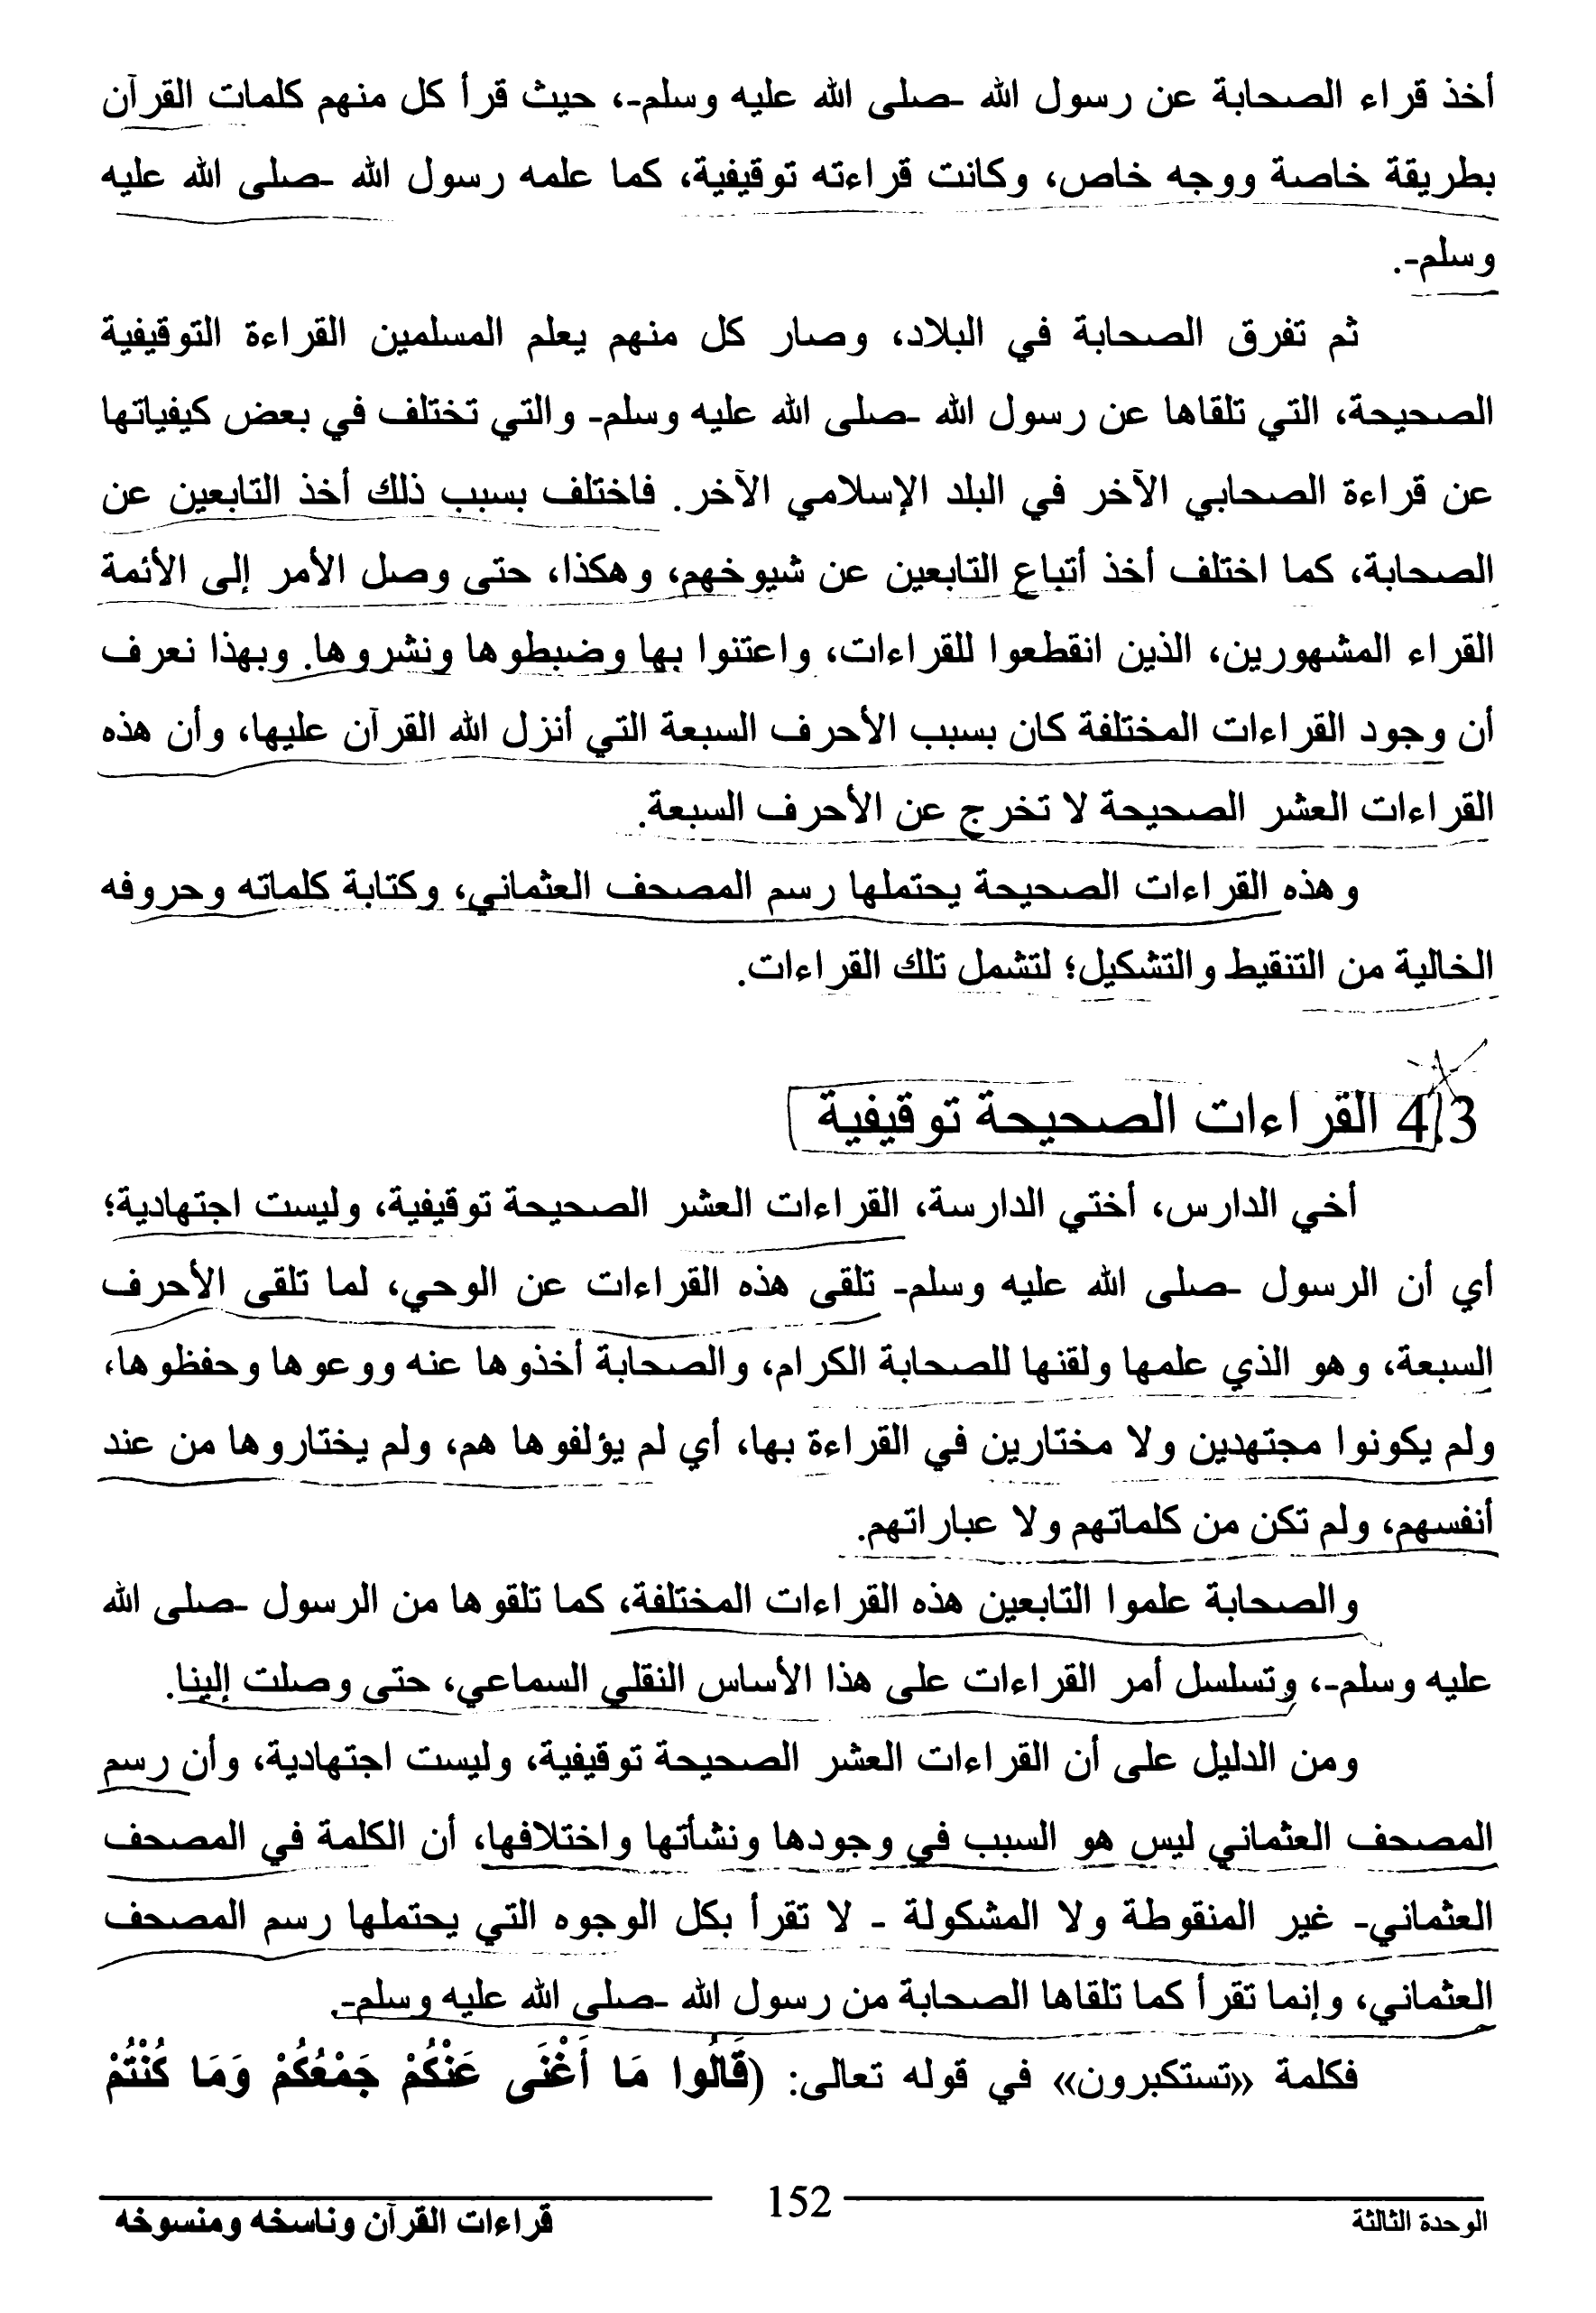 أخذ قراء الصحابة عن رسول الله -صلى الله عليه وسلم-، حيث قرأ كل منهم كلمات القرآن
بطريقة خاصة ووجه خاص، وكانت قراءته توقيفية، كما علمه رسول الله -صلى الله عليه
وسلم-.
ثم تفرق الصحابة في البلاد، وصار كل منهم يعلم المسلمين القراءة التوقيفية
الصحيحة، التي تلقاها عن رسول الله -صلى الله عليه وسلم- والتي تختلف في بعض كيفياتها
عن قراءة الصحابي الآخر في البلد الإسلامي الآخر. فاختلف بسبب ذلك أخذ التابعين عن
الصحابة، كما اختلف أخذ أتباع التابعين عن شيوخهم، وهكذا، حتى وصل الأمر إلى الأئمة
القراء المشهورين، الذين انقطعوا للقراءات، واعتنوا بها وضبطوها ونشروها. وبهذا نعرف
أن وجود القراءات المختلفة كان بسبب الأحرف السبعة التي أنزل الله القرآن عليها، وأن هذه
القراءات العشر الصحيحة لا تخرج عن الأحرف السبعة.
وهذه القراءات الصحيحة يحتملها رسم المصحف العثماني، وكتابة كلماته وحروفه
الخالية من التنقيط والتشكيل؛ لتشمل تلك القراءات.
4.3 القراءات الصحيحة توقيفية
أخي الدارس، أختي الدارسة، القراءات العشر الصحيحة توقيفية، وليست اجتهادية؛
أي أن الرسول -صلى الله عليه وسلم- تلقى هذه القراءات عن الوحي، لما تلقى الأحرف
السبعة، وهو الذي علمها ولقنها للصحابة الكرام، والصحابة أخذوها عنه ووعوها وحفظوها،
ولم يكونوا مجتهدين ولا مختارين في القراءة بها، أي لم يؤلفوها هم، ولم يختاروها من عند
أنفسهم، ولم تكن من كلماتهم ولا عباراتهم.
والصحابة علموا التابعين هذه القراءات المختلفة، كما تلقوها من الرسول -صلى الله
عليه وسلم-، وتسلسل أمر القراءات على هذا الأساس النقلي السماعي، حتى وصلت إلينا.
ومن الدليل على أن القراءات العشر الصحيحة توقيفية، وليست اجتهادية، وأن رسم
المصحف العثماني ليس هو السبب في وجودها ونشأتها واختلافها، أن الكلمة في المصحف
العثماني- غير المنقوطة ولا المشكولة - لا تقرأ بكل الوجوه التي يحتملها رسم المصحف
العثماني، وإنما تقرأ كما تلقاها الصحابة من رسول الله -صلى الله عليه وسلم-.
فكلمة «تستكبرون» في قوله تعالى: (قَالُوا مَا أَغْنَى عَنْكُمْ جَمْعُكُمْ وَمَا كُنْتُمْ
الوحدة الثالثة 152 قراءات القرآن وناسخه ومنسوخه